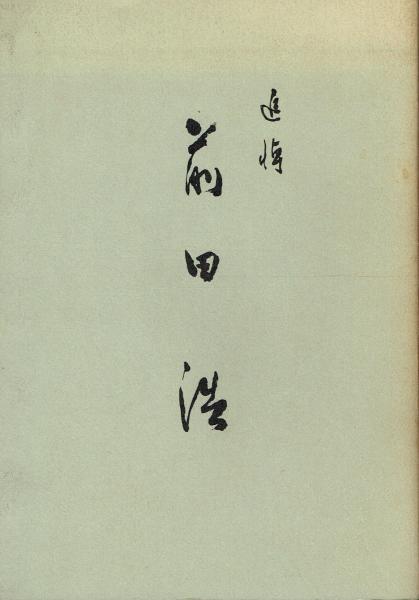 追悼
前田浩